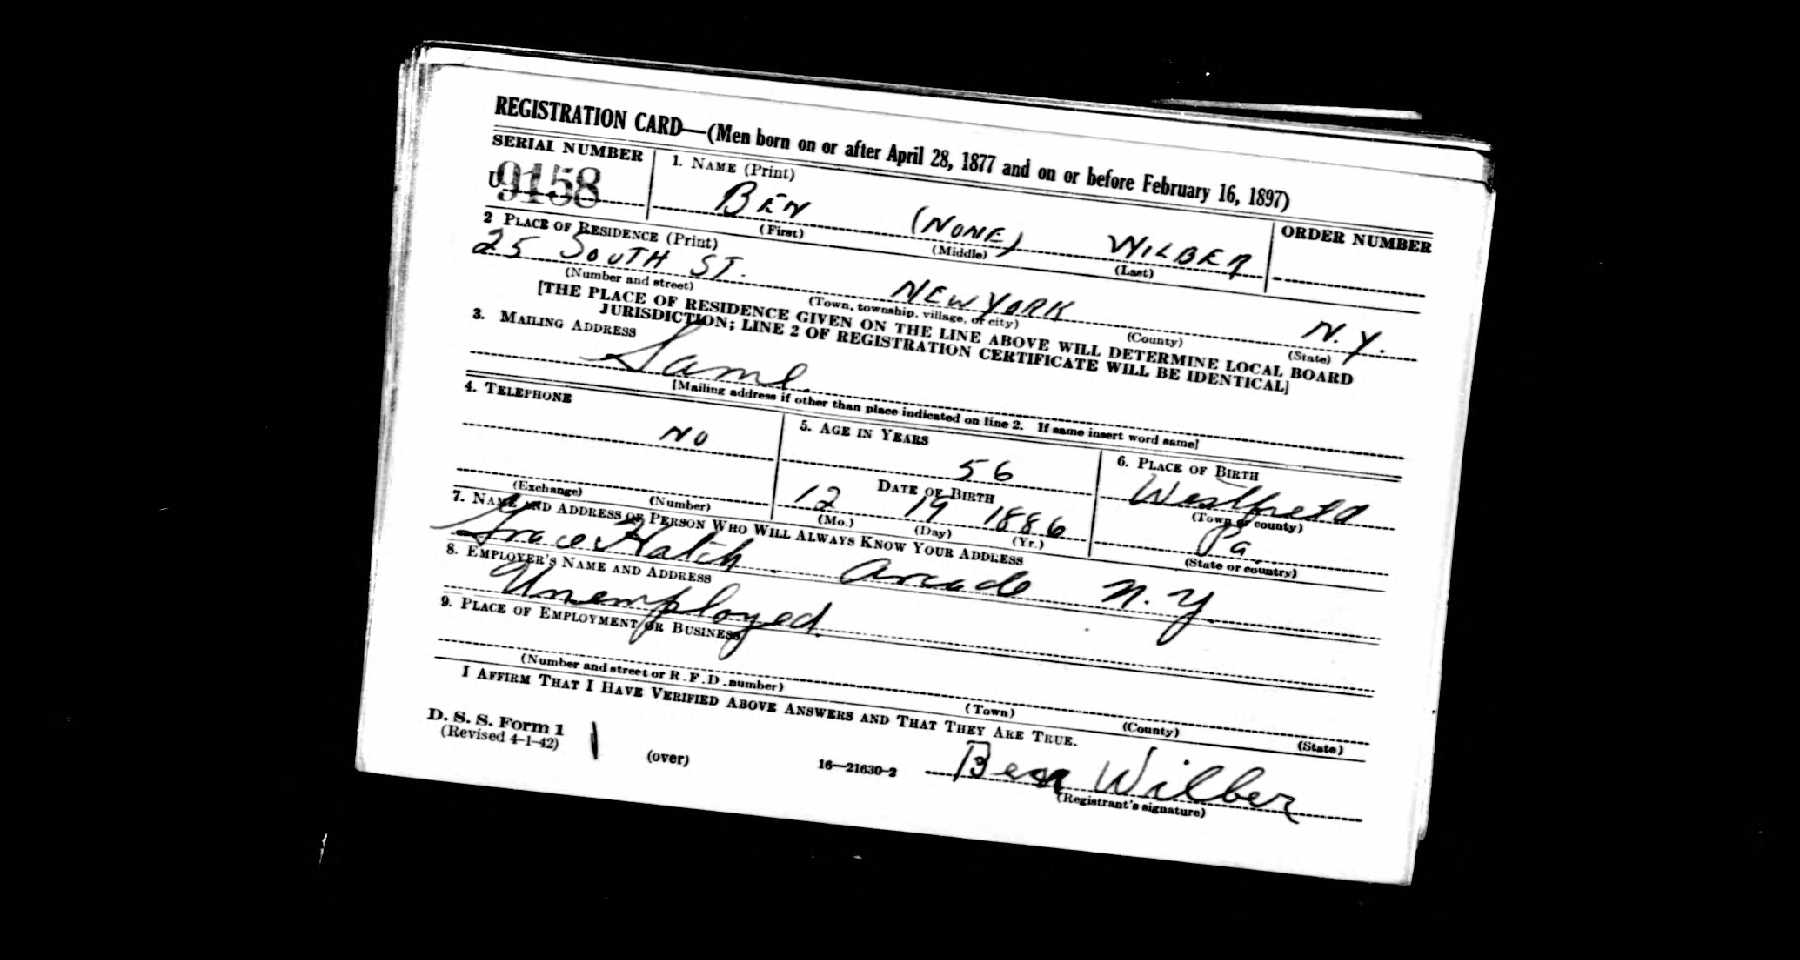 REGISTRATION CARD—(Men born on or after April 28, 1877 and on or before February 16, 1897)
SERIAL NUMBER
U 9158
1. NAME (Print)
BEN (NONE) WILBER
(First) (Middle) (Last)
ORDER NUMBER
2 PLACE OF RESIDENCE (Print)
25 SOUTH ST. NEW YORK N.Y.
(Number and street) (Town, township, village, or city) (County) (State)
[THE PLACE OF RESIDENCE GIVEN ON THE LINE ABOVE WILL DETERMINE LOCAL BOARD
JURISDICTION; LINE 2 OF REGISTRATION CERTIFICATE WILL BE IDENTICAL]
3. MAILING ADDRESS
Same.
[Mailing address if other than place indicated on line 2. If same insert word same]
4. TELEPHONE
NO
(Exchange) (Number)
5. AGE IN YEARS
56
DATE OF BIRTH
12 19 1886
(Mo.) (Day) (Yr.)
6. PLACE OF BIRTH
Westfield
(Town or county)
Pa
(State or country)
7. NAME AND ADDRESS OF PERSON WHO WILL ALWAYS KNOW YOUR ADDRESS
Grace Hatch. Arcade N.Y.
8. EMPLOYER'S NAME AND ADDRESS
Unemployed.
9. PLACE OF EMPLOYMENT OR BUSINESS
(Number and street or R. F. D. number) (Town) (County) (State)
I AFFIRM THAT I HAVE VERIFIED ABOVE ANSWERS AND THAT THEY ARE TRUE.
D. S. S. Form 1
(Revised 4-1-42)
(over)
16—21630-2
Ben Wilber
(Registrant's signature)